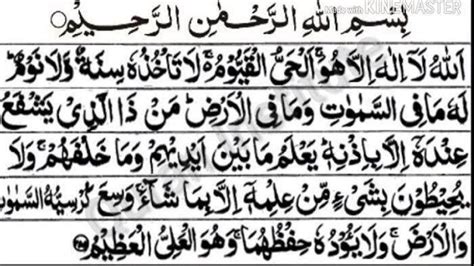 Made with KINEMASTER
بِسْمِ اللهِ الرَّحْمٰنِ الرَّحِيْمِ
اَللهُ لَآ اِلٰهَ اِلَّا هُوَ ۚ اَلْحَيُّ الْقَيُّوْمُ ۚ لَا تَاْخُذُهٗ سِنَةٌ وَّلَا نَوْمٌ ؕ
لَهٗ مَا فِي السَّمٰوٰتِ وَمَا فِي الْاَرْضِ ؕ مَنْ ذَا الَّذِيْ يَشْفَعُ
عِنْدَهٗٓ اِلَّا بِاِذْنِهٖ ؕ يَعْلَمُ مَا بَيْنَ اَيْدِيْهِمْ وَمَا خَلْفَهُمْ ۚ وَلَا
يُحِيْطُوْنَ بِشَيْءٍ مِّنْ عِلْمِهٖٓ اِلَّا بِمَا شَآءَ ۚ وَسِعَ كُرْسِيُّهُ السَّمٰوٰتِ
وَالْاَرْضَ ۚ وَلَا يَـُٔوْدُهٗ حِفْظُهُمَا ۚ وَهُوَ الْعَلِيُّ الْعَظِيْمُ